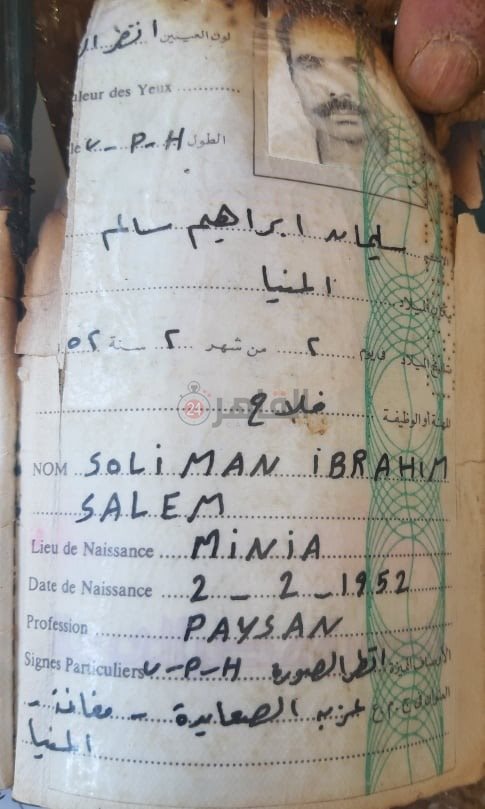 لون العينين انظر ال
uleur des Yeux
le V-P-H الطول
سليمان ابراهيم سالم
مكان الميلاد المنيا
تاريخ الميلاد في يوم ٢ من شهر ٢ سنة ٥٢
المهنة أو الوظيفة فلاح
القاهرة 24
NOM SOLIMAN IBRAHIM
SALEM
Lieu de Naissance MINIA
Date de Naissance 2 - 2 - 1952
Profession PAYSAN
Signes Particuliers V-P-H انظر الصورة
العنوان في ج.م.ع عزب الصعايدة - مغاغة -
المنيا